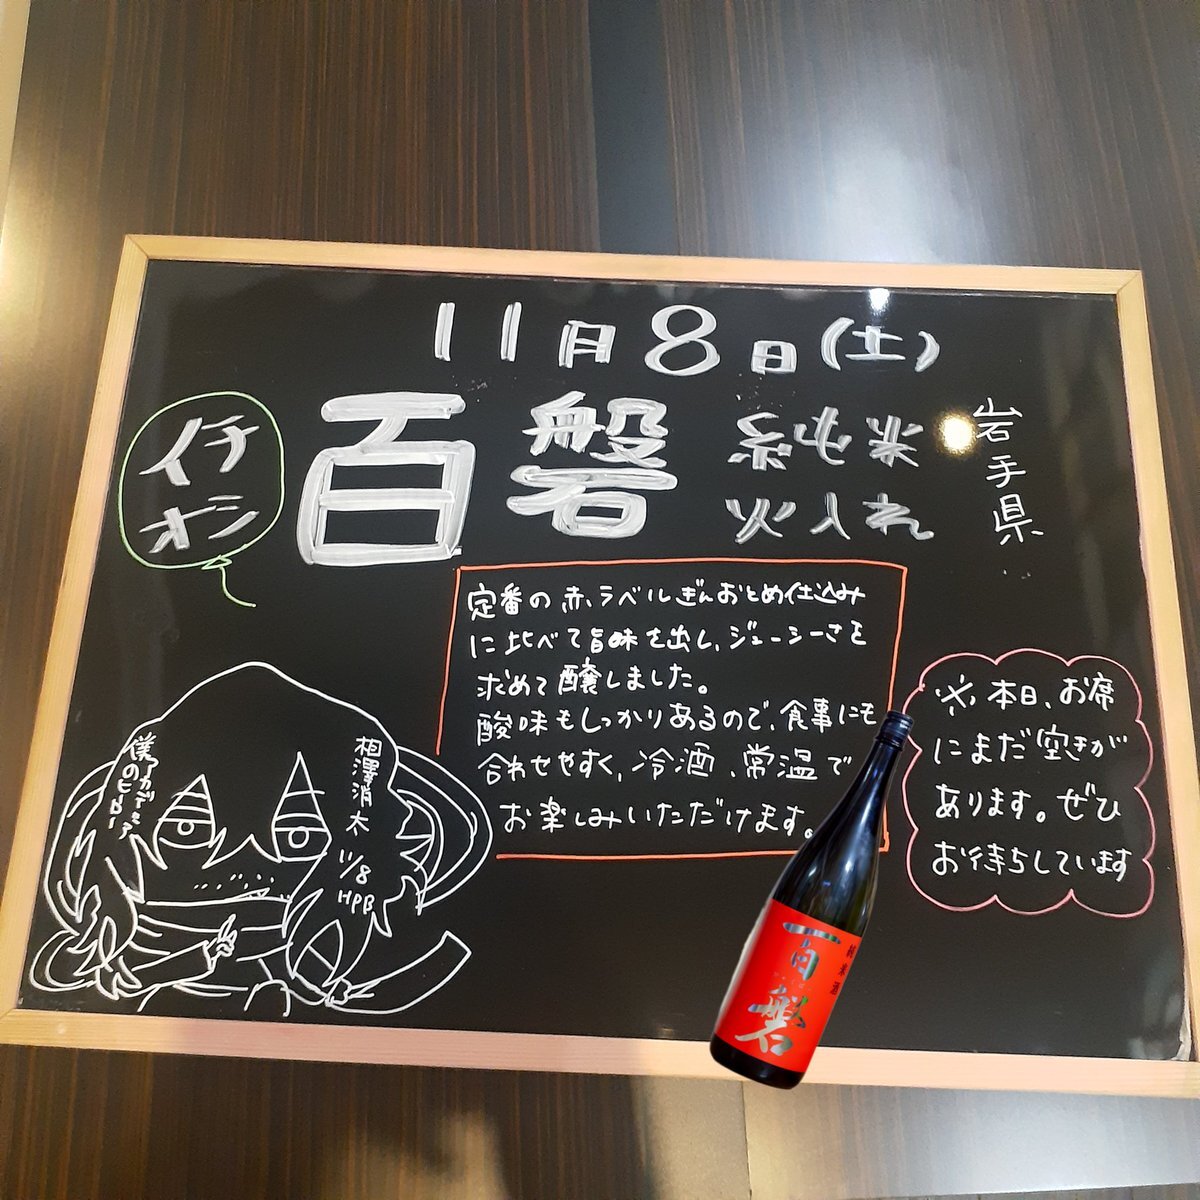 11月8日(土)
イチ
オシ
百磐
純米
火入れ
岩手県
定番の赤ラベルぎんおとめ仕込み
に比べて旨味を出し、ジューシーさを
求めて醸しました。
酸味もしっかりあるので、食事にも
合わせやすく、冷酒、常温で
お楽しみいただけます。
※本日、お席
にまだ空きが
あります。ぜひ
お待ちしています
僕の
ヒーロー
アカデミア
相澤消太
11/8
HPB
純米酒
百磐